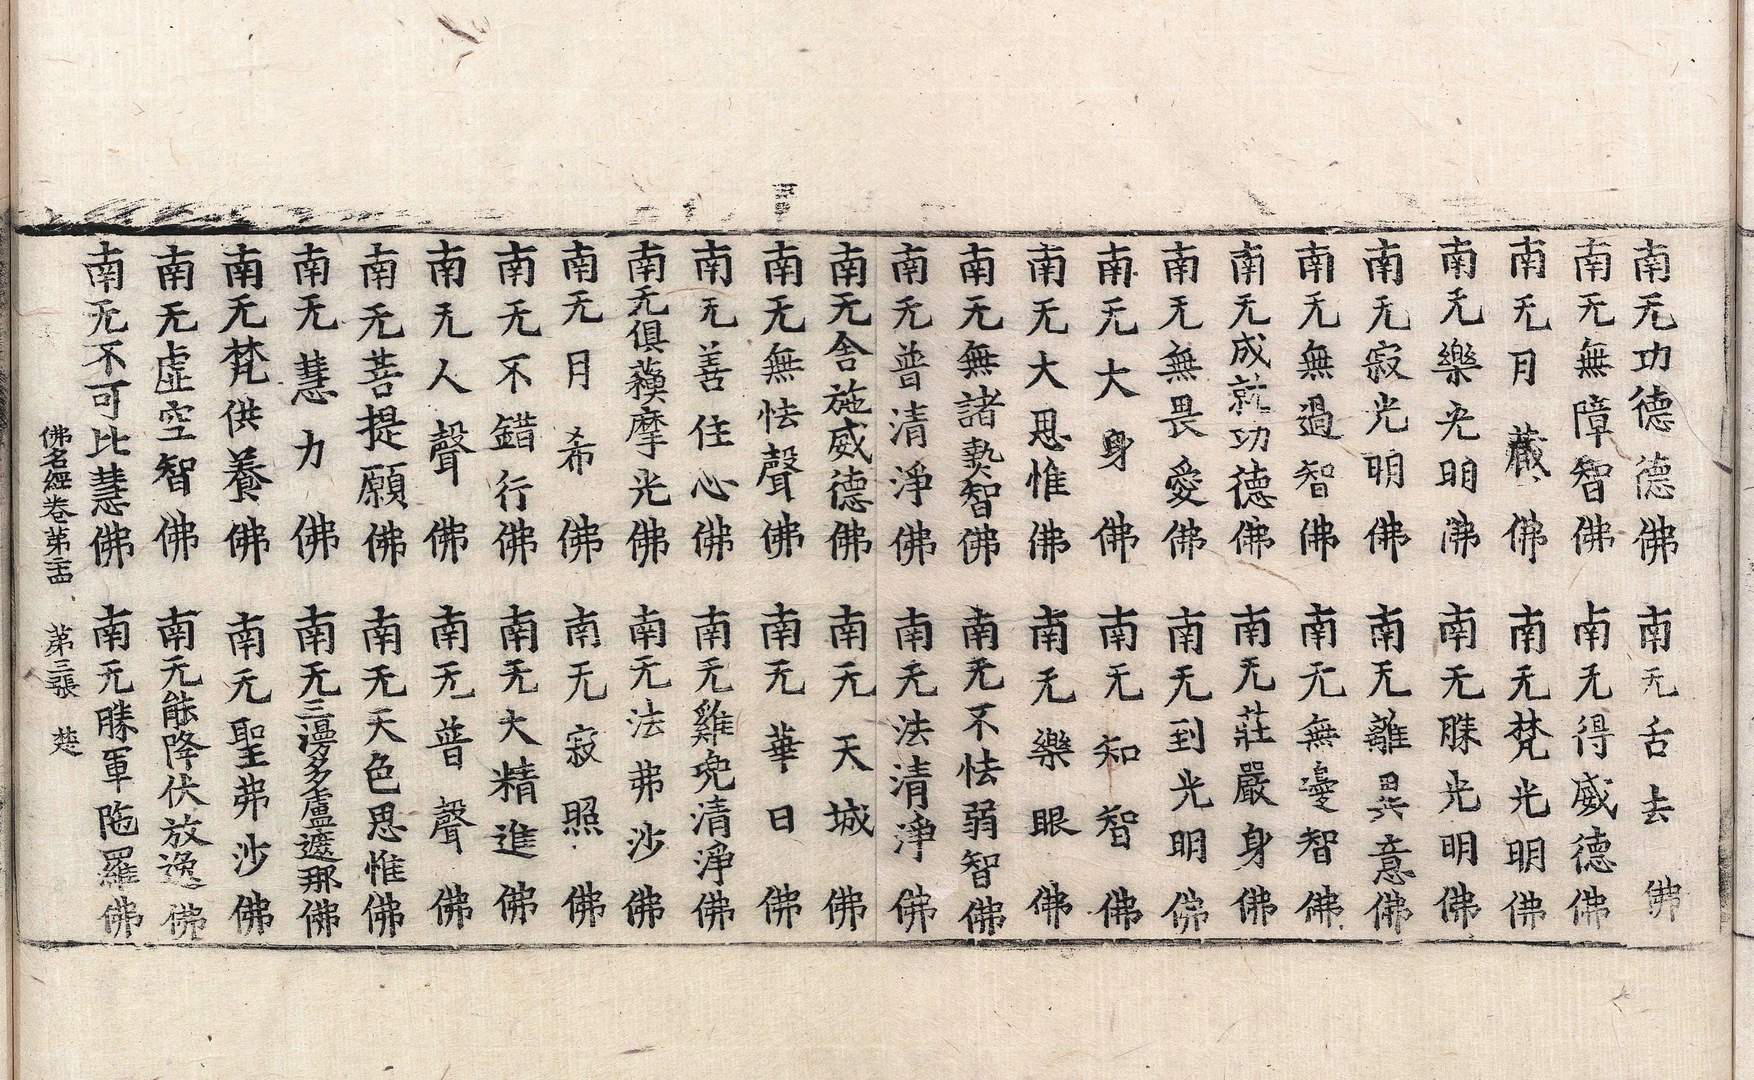 南无功德德佛　南无舌去佛
南无無障智佛　南无得威德佛
南无月藏佛　南无梵光明佛
南无樂光明佛　南无勝光明佛
南无寂光明佛　南无離異意佛
南无無過智佛　南无無邊智佛
南无成就功德佛　南无莊嚴身佛
南无無畏愛佛　南无到光明佛
南无大身佛　南无知智佛
南无大思惟佛　南无樂眼佛
南无無諸藝智佛　南无不怯弱智佛
南无普清淨佛　南无法清淨佛
南无舍施威德佛　南无天城佛
南无無怯聲佛　南无華日佛
南无善住心佛　南无雞兜清淨佛
南无俱蘇摩光佛　南无法弗沙佛
南无月希佛　南无寂照佛
南无不錯行佛　南无大精進佛
南无人聲佛　南无普聲佛
南无菩提願佛　南无天色思惟佛
南无慧力佛　南无三湯多多盧遮那佛
南无梵供養佛　南无聖弗沙佛
南无虛空智佛　南无能降伏放逸佛
南无不可比慧佛　南无勝軍陁羅佛
佛名經卷第二十四　第三張　楚